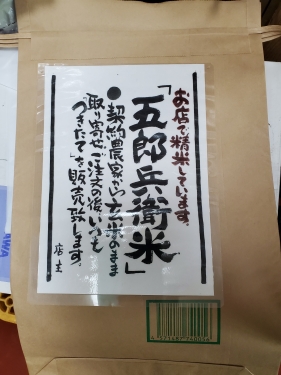 お店で精米しています。
「五郎兵衛米」
●契約農家から玄米のまま
取り寄せ、ご注文の後いつも
「つきたて」を販売致します。
店主